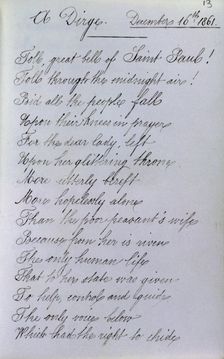 13
A Dirge. December 16th 1861.
Toll, great bell of Saint Paul!
Toll through the midnight air!
Bid all the people fall
Upon their knees in prayer
For the dear lady, left
Upon her glittering throne
More utterly bereft
More hopelessly alone
Than the poor peasant's wife
Because from her is riven
The only human life
That to her state was given
To help, control and guide
The only voice below
Which had the right to chide